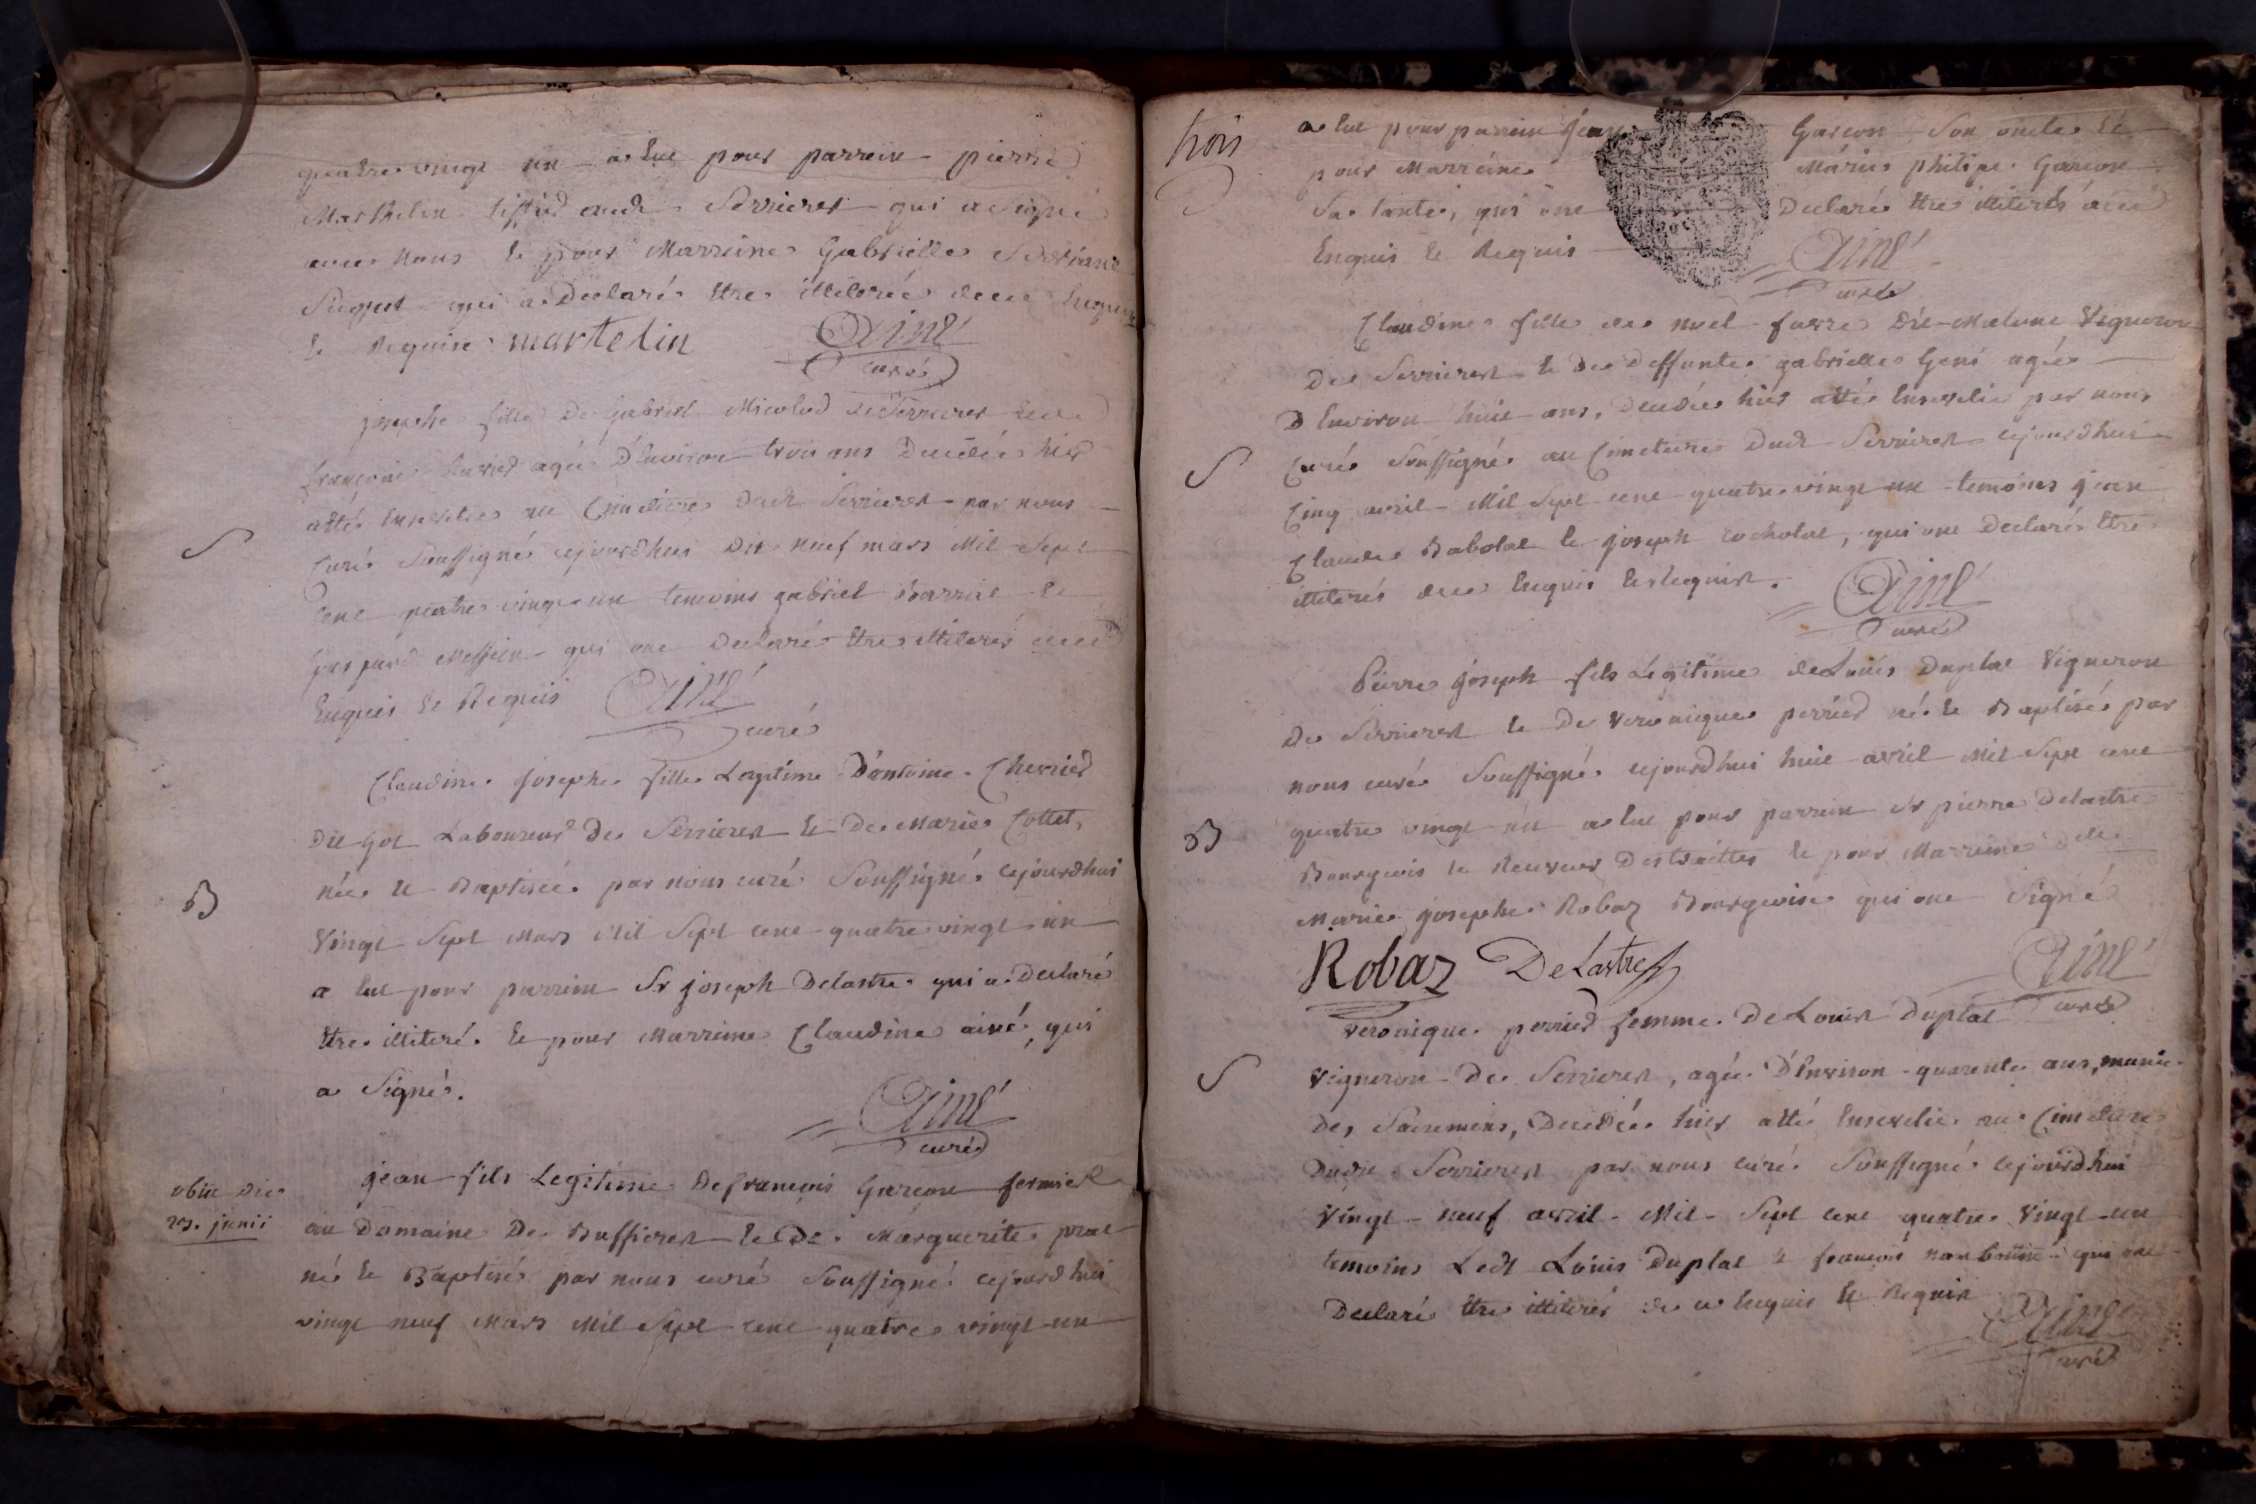 quatre vingt un a eut pour parrein pierre
Marthelin dudt Serrieres qui a signé
avec nous et pour Marreine Gabrielle
qui a Declaré être illiteré de ce Enquise
et Requise martelin Ainé
curé
josephe fille De Gabriel Micolod de Serrieres et de
françoise agée D'Environ trois ans Decedée hier
atté Ensevelie au Cimetiere dudt Serrieres par nous
S
Curé Soussigné cejourdhui Dix neuf mars Mil Sept
Cent quatre vingt un temoins gabriel Barrial et
gaspard Messieu qui ont Declaré être illiterés de ce
Enquis et Requis Ainé
curé
Claudine josephe fille Legitime D'antoine Chevrier
Dit got Laboureur De Serrieres et De Marie Cottet,
née et Baptisée par nous curé Soussigné cejourdhui
B
Vingt Sept Mars Mil Sept cent quatre vingt un
a eut pour parrein Sr joseph Delastre qui a Declaré
être illiteré et pour Marreine Claudine ainé, qui
a Signé.
Ainé
curé
obiit die
23. junii
jean fils Legitime De françois Garcon fermier
au Domaine De Buffieres et De Marguerite prat
né et Baptisé par nous curé Soussigné cejourdhui
vingt neuf Mars Mil Sept cent quatre vingt un
trois
a eut pour parrein jean Garcon Son oncle et
pour Marreine Marie philipe Garcon
Sa tante, qui ont Declaré être illiterés de ce
Enquis et Requis Ainé
curé
Claudine fille de noel favre Dit Matune Vigneron
De Serrieres et De deffunte gabrielle Gené agée
D'Environ huit ans, Decedée hier atté Ensevelie par nous
S
Curé Soussigné au Cimetiere Dudt Serrieres cejourdhui
Cinq avril Mil Sept cent quatre vingt un temoins jean
Claude Babolat et joseph cocholat, qui ont Declaré être
illiterés de ce Enquis et Requis. Ainé
curé
Pierre joseph fils Legitime de Louis Duplat Vigneron
De Serrieres et De veronique perrier né et Baptisé par
nous curé Soussigné cejourdhui huit avril Mil Sept cent
B
quatre vingt un a eut pour parrein Sr pierre Delastre
Bourgeois et Receveur Des traittes et pour Marreine delle
Marie josephe Robaz Bourgeoise qui ont Signé
Robaz DeLastre Ainé
curé
Veronique perrier femme De Louis Duplat
S
Vigneron De Serrieres, agée D'Environ quarente ans, munie
Des Sacremens, Decedée hier atté Ensevelie au Cimetiere
Dudit Serrieres par nous curé Soussigné cejourdhui
Vingt neuf avril Mil Sept cent quatre Vingt un
temoins Ledt Louis Duplat et françois qui ont
Declaré être illiterés de ce Enquis et Requis Ainé
curé